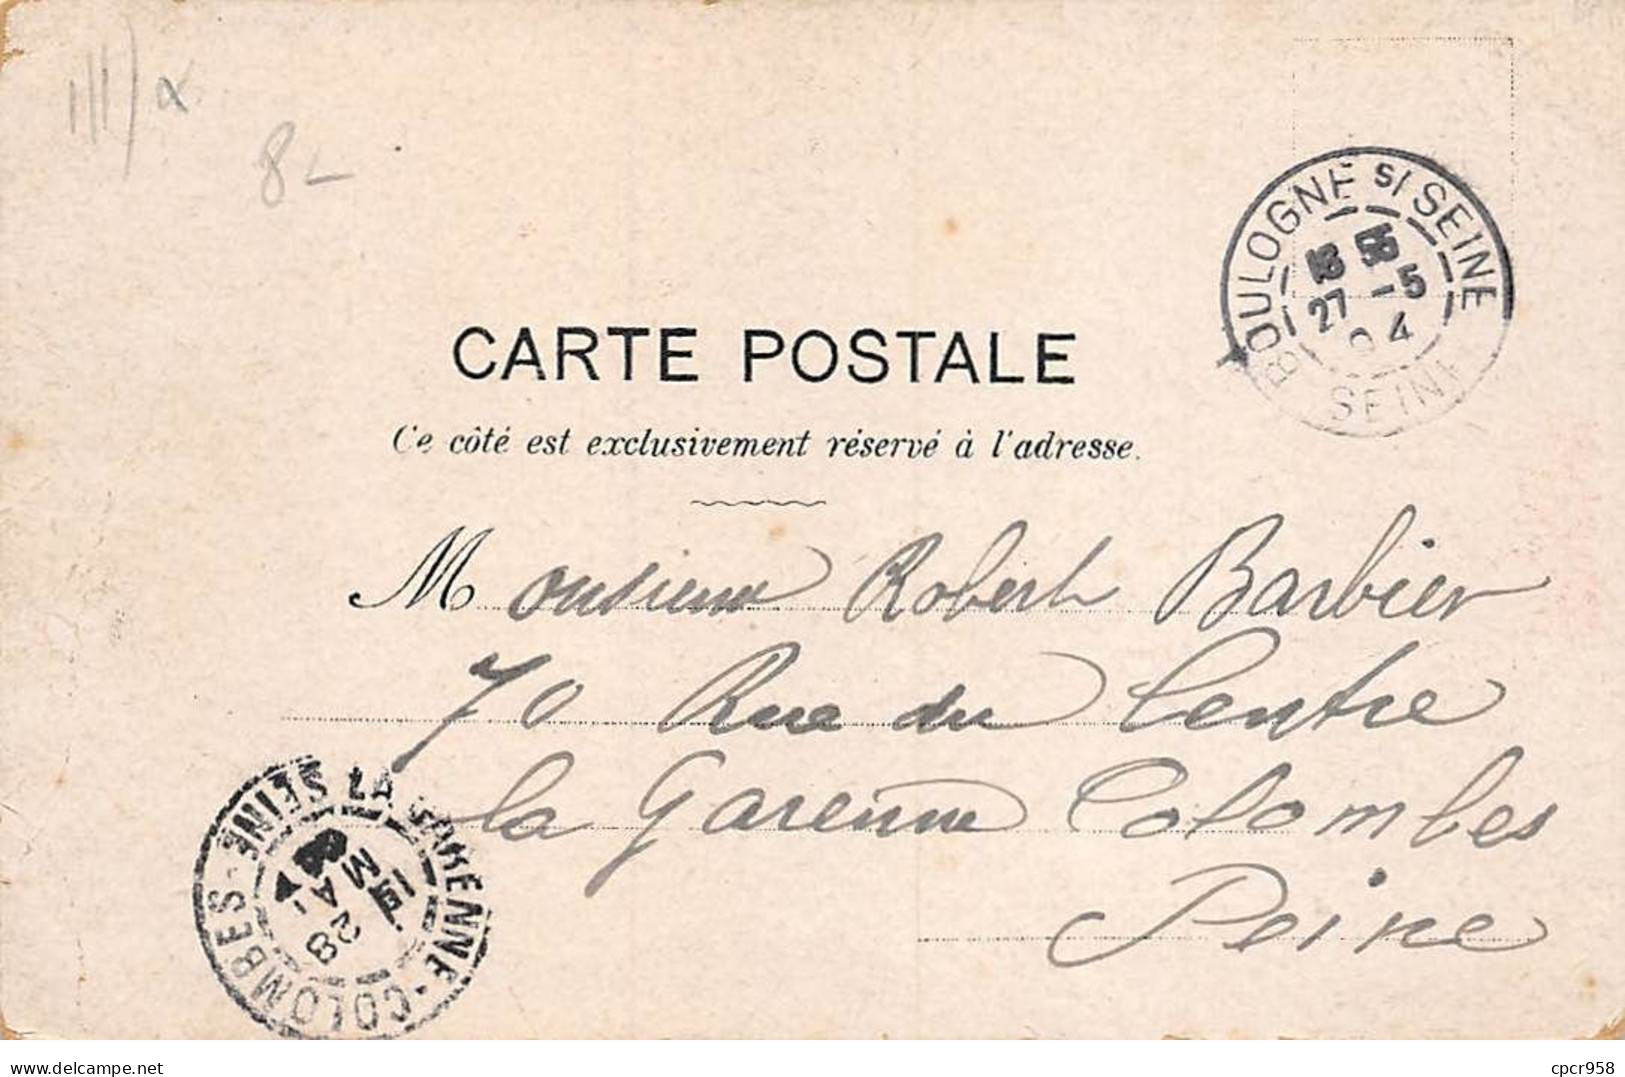 III) α
8-
BOULOGNE S/ SEINE
27 -5
04
SEINE
CARTE POSTALE
Ce côté est exclusivement réservé à l'adresse.
Monsieur Robert Barbier
70 Rue du Centre
la Garenne Colombes
Seine
LA GARENNE-COLOMBES-SEINE
28
MAI
delcampe.net
cpcr958